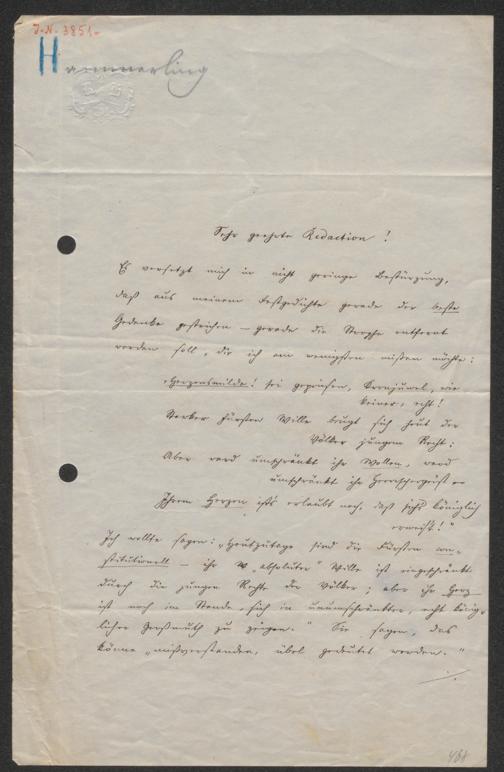 J.N. 3851
Hammerling
Sehr geehrte Redaction!
Es versetzt mich in nicht geringe Bestürzung,
daß aus meinem Festgedichte gerade der beste
Gedanke gestrichen – gerade die Strophe entfernt
werden soll, die ich am wenigsten missen möchte:
„Herzensmilde! sei gepriesen, Kronjuwel, wie
keines, echt!
Starker Fürsten Wille beugt sich heut der
Völker jungem Recht:
Aber ward umschränkt ihr Wollen, ward
umschränkt ihr Herrschergeist
Ihrem Herzen ist's erlaubt noch, daß sich's königlich
erweist!"
Ich wollte sagen: „Heutzutage sind die Fürsten con-
stitutionell – ihr „absoluter" Wille ist eingeschränkt
durch die jungen Rechte der Völker; aber ihr Herz
ist noch im Stande, sich in unumschränkter, echt könig-
licher Großmuth zu zeigen." Sie sagen, das
könne „mißverstanden, übel gedeutet werden."